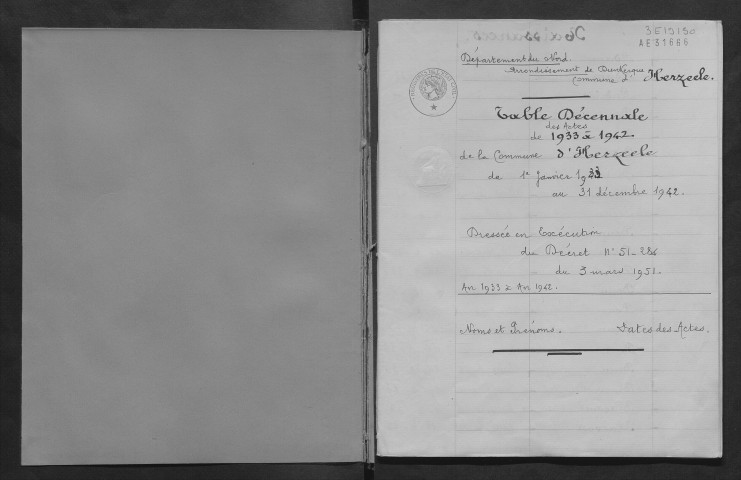 3E19190
AE31666
Département du Nord.
Arrondissement de Dunkerque
Commune d' Herzeele.
Table Décennale
des Actes
de 1933 à 1942.
de la Commune d'Herzeele
du 1er Janvier 1933
au 31 décembre 1942.
Dressée en Exécution
du Décret N° 51-284
du 3 mars 1951.
An 1933 à An 1942.
Noms et Prénoms. Dates des Actes.